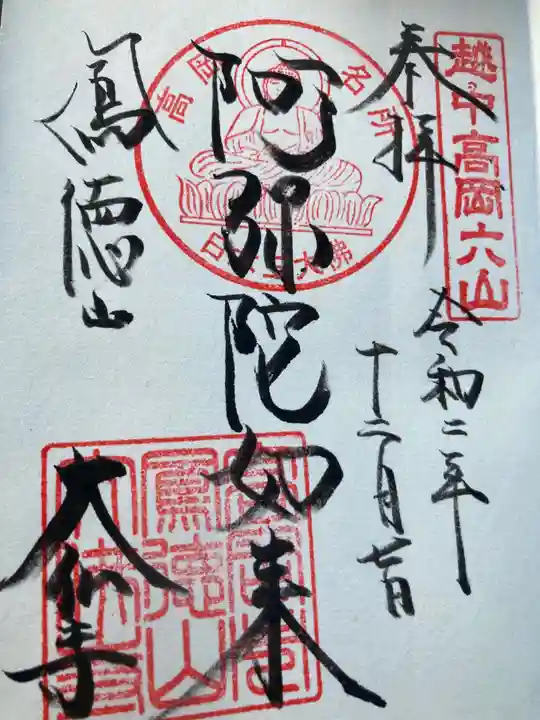 越中高岡六山
奉拝
令和二年
十二月七日
高岡名所
日本三大佛
阿弥陀如来
鳳徳山
大仏寺